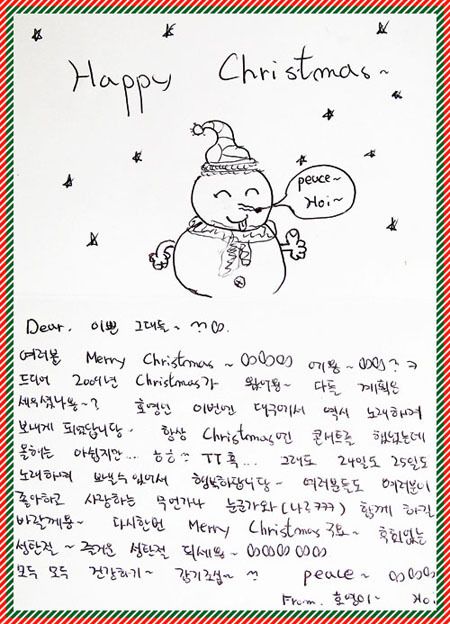 Happy Christmas~
peace~
Hoi~
Dear. 이쁜 그대들~ ^^
여러분 Merry Christmas~
드디어 2009년 Christmas가 왔어용~ 다들 계획은
세우셨나용~? 호영인 이번엔 대구에서 역시 노래하며
보내게 되었답니당~ 항상 Christmas엔 콘서트를 했었는데
올해는 아쉽지만... ㅠㅠ 흑... 그래도 24일도 25일도
노래하며 보낼수 있어서 행복하답니당~ 여러분들도 여러분이
좋아하고 사랑하는 무언가나 누군가와 (나? ㅋㅋㅋ) 함께 하길
바랄께용~ 다시한번 Merry Christmas 후회없는
성탄절~ 즐거운 성탄절 되세용~
모두 모두 건강하기~ 감기조심~ ^^ peace~
From. 호영이~ Hoi